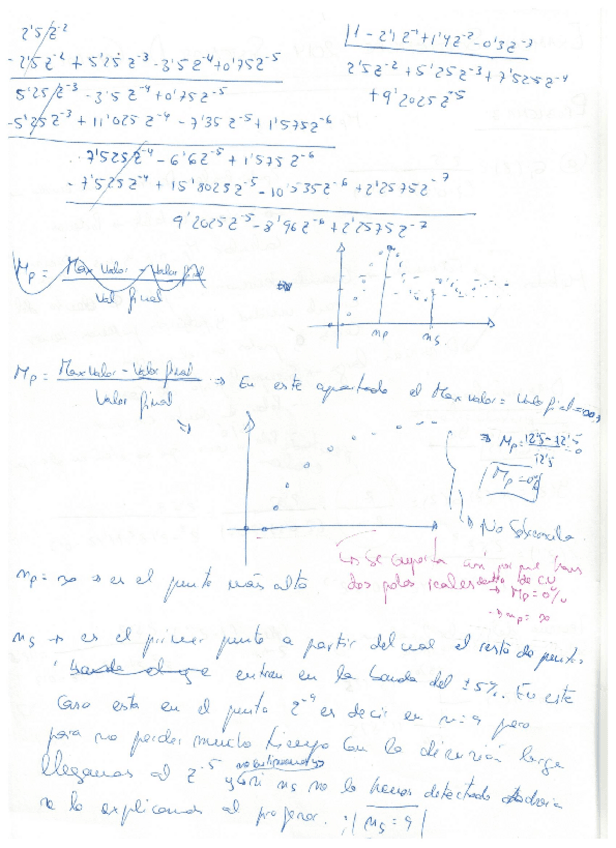 2,5z⁻² |1 - 2,1z⁻¹ + 1,4z⁻² - 0,3z⁻³
-2,5z⁻² + 5,25z⁻³ - 3,5z⁻⁴ + 0,75z⁻⁵ 2,5z⁻² + 5,25z⁻³ + 7,525z⁻⁴
5,25z⁻³ - 3,5z⁻⁴ + 0,75z⁻⁵ + 9,2025z⁻⁵
-5,25z⁻³ + 11,025z⁻⁴ - 7,35z⁻⁵ + 1,575z⁻⁶
7,525z⁻⁴ - 6,6z⁻⁵ + 1,575z⁻⁶
-7,525z⁻⁴ + 15,8025z⁻⁵ - 10,535z⁻⁶ + 2,2575z⁻⁷
9,2025z⁻⁵ - 8,96z⁻⁶ + 2,2575z⁻⁷
Mp = Max valor - valor final
Val final
np ns
Mp = Max valor - Valor final ⇒ En este apartado el Max valor = Valor final
Valor final
⇒ Mp = 12'5 - 12'5 = 0
12'5
Mp = 0%
→ No Sobreoscila
↳ Se comporta así porque tiene
np = ∞ → es el punto más alto dos polos reales dentro de CU
→ Mp = 0%
→ np = ∞
ns → es el primer punto a partir del cual el resto de puntos
entran en la banda del ±5%. En este
caso esta en el punto z⁻⁹ es decir en n = 9 pero
para no perder mucho tiempo con la división larga
llegamos al z⁻⁵ y si ns no lo hemos detectado
se lo explicamos al profesor. ns = 9